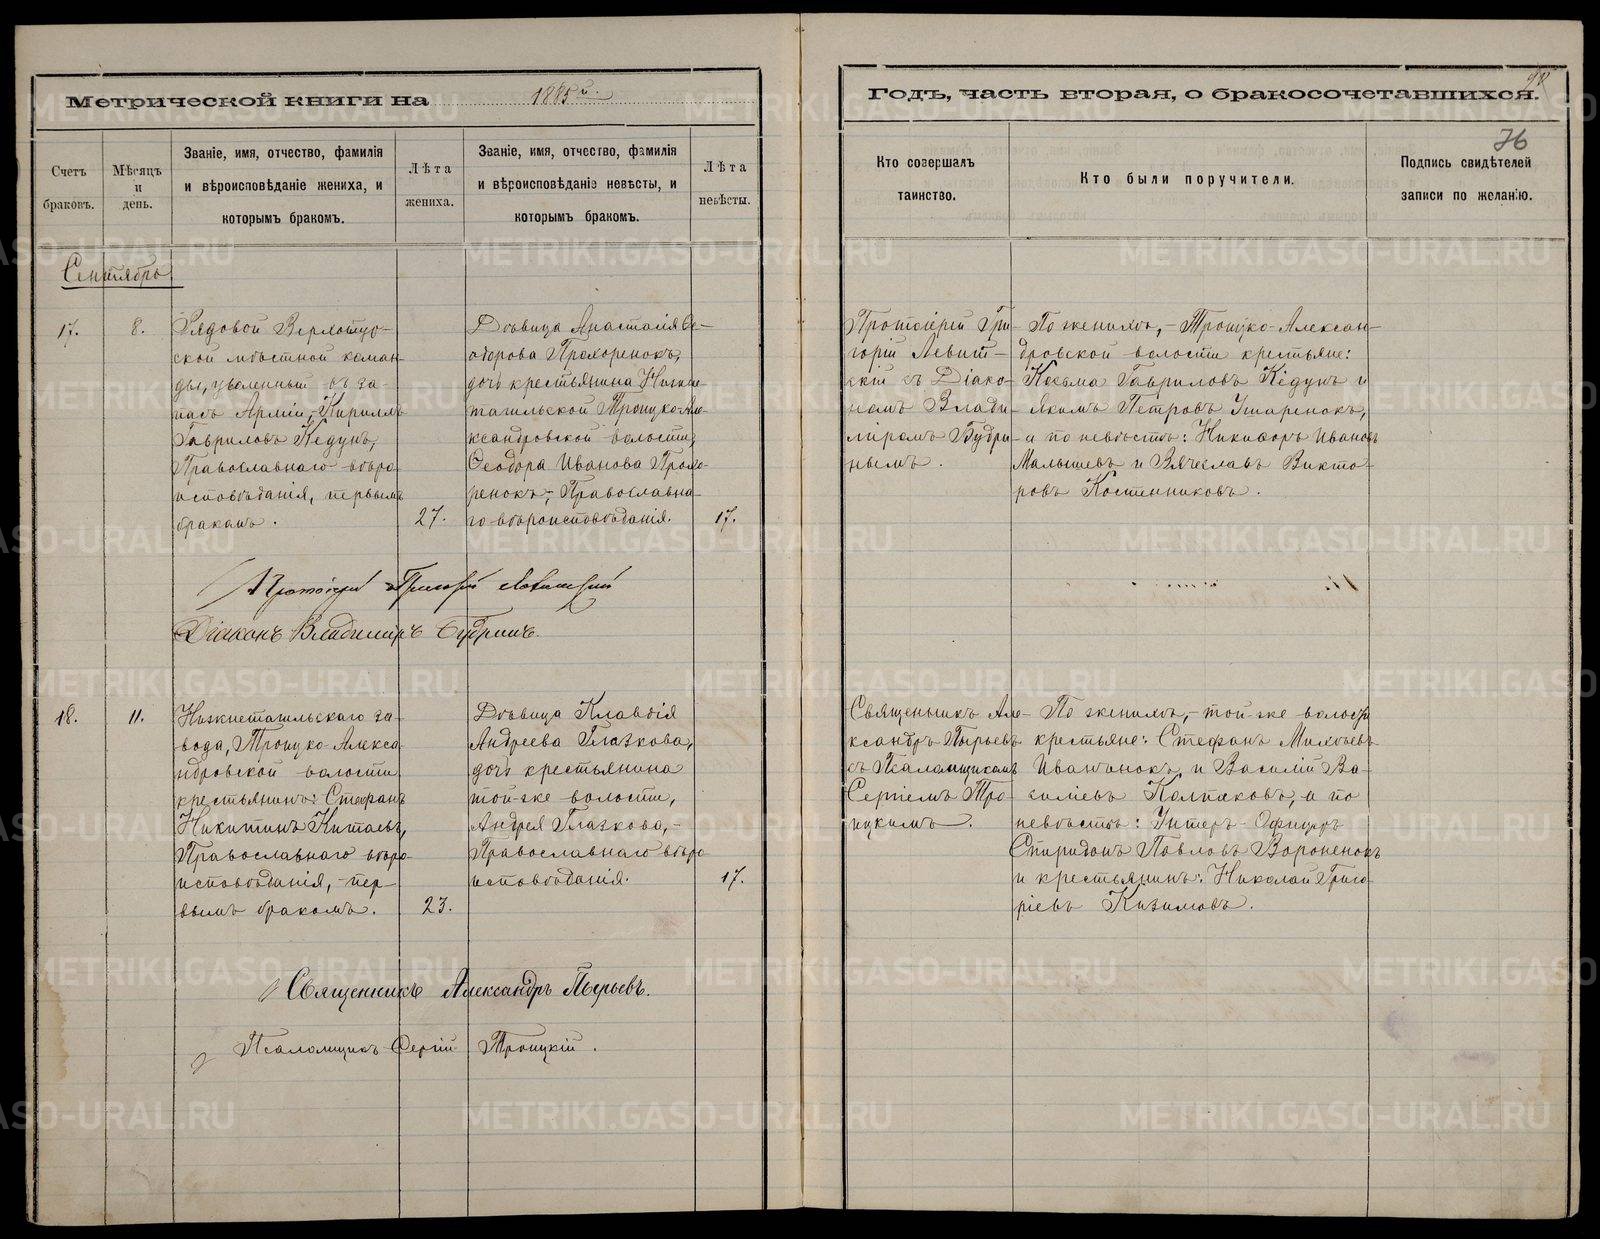 Метрической книги на 1885й.
Годъ, часть вторая, о бракосочетавшихся.
76
Счетъ браковъ.
Мѣсяцъ и день.
Званіе, имя, отчество, фамилія
и вѣроисповѣданіе жениха, и
которымъ бракомъ.
Лѣта
жениха.
Званіе, имя, отчество, фамилія
и вѣроисповѣданіе невѣсты, и
которымъ бракомъ.
Лѣта
невѣсты.
Кто совершалъ
таинство.
Кто были поручители.
Подпись свидѣтелей
записи по желанію.
Сентябрь
17.
8.
Рядовой Верхотур-
ской мѣстной коман-
ды, уволенный въ за-
пасъ Арміи, Кириллъ
Гавриловъ Кедунъ,
Православнаго вѣро-
исповѣданія, первымъ
бракомъ.
27.
Дѣвица Анастасія Ѳе-
одорова Прохоренокъ,
дочь крестьянина Нижне-
тагильской Троицко-Але-
ксандровской волости,
Ѳеодора Иванова Прохо-
ренокъ, Православна-
го вѣроисповѣданія.
17.
Протоіерей Гри-
горій Левит-
скій съ Діако-
номъ Влади-
міромъ Будри-
нымъ.
По женихѣ, - Троицко-Алексан-
дровской волости крестьяне:
Косьма Гавриловъ Кедунъ и
Якимъ Петровъ Ушаренокъ,
а по невѣстѣ: Никифоръ Ивановъ
Малышевъ и Вячеславъ Викто-
ровъ Костенниковъ.
Протоіерей Григорій Левитскій
Діаконъ Владиміръ Будринъ.
18.
11.
Нижнетагильскаго за-
вода, Троицко-Алекса-
ндровской волости
крестьянинъ: Стефанъ
Никитинъ Китаевъ,
Православнаго вѣро-
исповѣданія, - пер-
вымъ бракомъ.
23.
Дѣвица Клавдія
Андреева Глазкова,
дочь крестьянина
той-же волости,
Андрея Глазкова, -
Православнаго вѣро-
исповѣданія.
17.
Священникъ Але-
ксандръ Пырьевъ
съ Псаломщикомъ
Сергіемъ Тро-
ицкимъ.
По женихѣ, - той-же волости
крестьяне: Стефанъ Михѣевъ
Иванчнокъ и Василій Ва-
силіевъ Колпаковъ, а по
невѣстѣ: Унтеръ-Офицеръ
Спиридонъ Павловъ Вороненокъ
и крестьянинъ: Николай Григо-
ріевъ Кизимовъ.
Священникъ Александръ Пырьевъ.
Псаломщикъ Сергій Троицкій.
METRIKI.GASO-URAL.RU